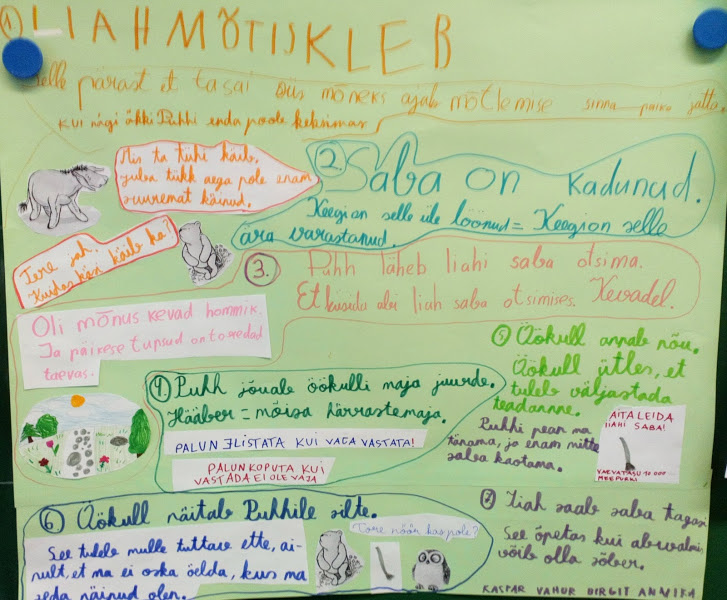 1 IIAH MÕTISKLEB
selle pärast et ta sai üüs mõneks ajab mõtlemise sinna paiva jätta.
KUI nägi ähki Puhhi enda poole keksimas
Mis ta tühi käib,
juba tükk aega pole enam
suuremat käinud.
2. Saba on kadunud.
Keegi on selle üle löönud = Keegi on selle
ära varastanud.
Tere jah.
Kuidas käsi käib ka?
3. Puhh läheb Iiahi saba otsima.
Et küsida abi Iiah saba otsimises. Kevadel.
Oli mõnus kevad hommik.
Ja päikese tupsud on toredad
taevas.
4. Puhh jõuab öökulli maja juurde.
Häärber = mõisa härrastemaja.
PALUN ELISTATA KUI VAGA VASTATA!
PALUN KOPUTA KUI
VASTADA EI OLE VAJA
5 Öökull annab nõu.
Öökull ütles, et
tuleb väljastada
teadanne.
Puhhi pean ma
tänama, ja enam mitte
saba kaotama.
AITA LEIDA
IIAHI SABA!
VAEVATASU 10 000
MEEPURKI
6 Öökull näitab Puhhile silte.
See tuleb mulle tuttav ette, ai-
nult, et ma ei oska öelda, kus ma
seda näinud olen.
Tore nöör kas pole?
7 Iiah saab saba tagasi
See õpetas kui abivalmis
võib olla sõber.
KASPAR VAHUR BIRGIT ANNIKA